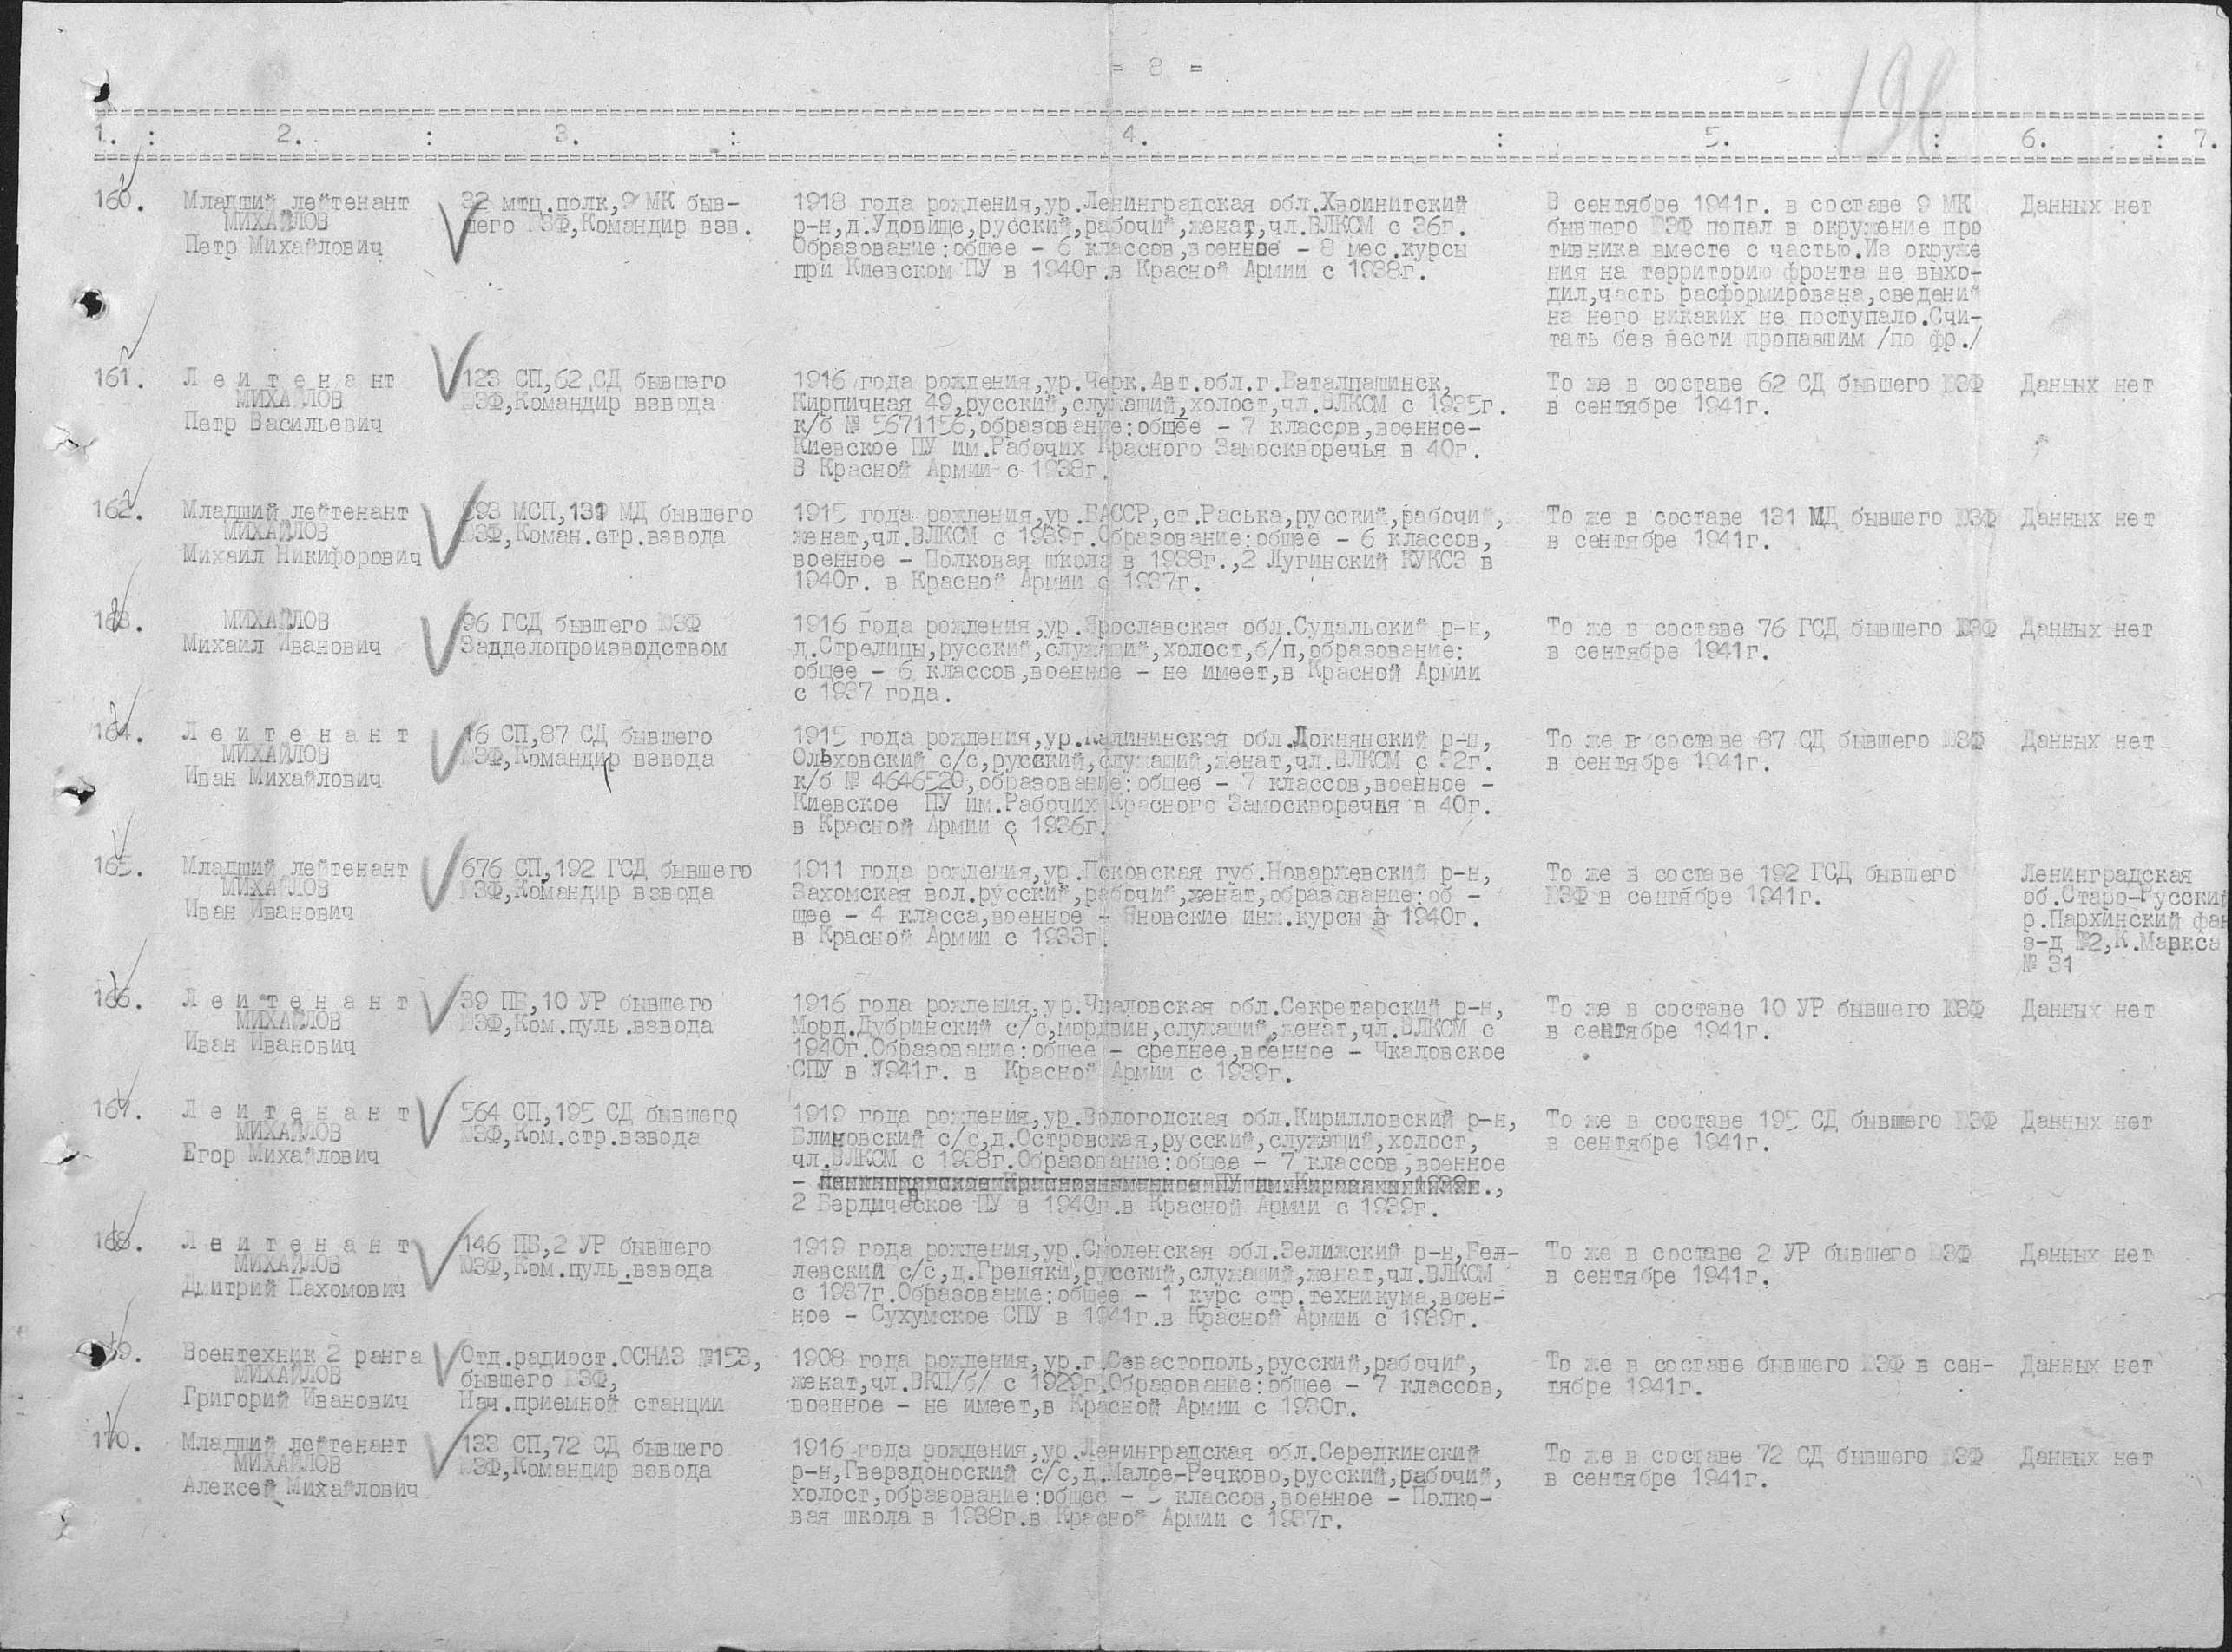 = 8 =
196
1. : 2. : 3. : 4. : 5. : 6. : 7.
160.
Младший лейтенант
МИХАЙЛОВ
Петр Михайлович
32 мтц.полк,9 МК быв-
шего ЮЗФ,Командир взв.
1918 года рождения,ур.Ленинградская обл.Хвоинитский
р-н,д.Удовище,русский,рабочий,женат,чл.ВЛКСМ с 36г.
Образование:общее - 6 классов,военное - 8 мес.курсы
при Киевском ПУ в 1940г.в Красной Армии с 1938г.
В сентябре 1941г. в составе 9 МК
бывшего ЮЗФ попал в окружение про
тивника вместе с частью.Из окруже
ния на территорию фронта не выхо-
дил,часть расформирована,сведений
на него никаких не поступало.Счи-
тать без вести пропавшим /по фр./
Данных нет
161.
Л е й т е н а нт
МИХАЙЛОВ
Петр Васильевич
123 СП,62 СД бывшего
ЮЗФ,Командир взвода
1916 года рождения,ур.Черк.Авт.обл.г.Баталпашинск,
Кирпичная 49,русский,служащий,холост,чл.ВЛКСМ с 1935г.
к/б № 5671156,образование:общее - 7 классов,военное-
Киевское ПУ им.Рабочих Красного Замоскворечья в 40г.
В Красной Армии с 1938г.
То же в составе 62 СД бывшего ЮЗФ
в сентябре 1941г.
Данных нет
162.
Младший лейтенант
МИХАЙЛОВ
Михаил Никифорович
593 МСП,131 МД бывшего
ЮЗФ,Коман.стр.взвода
1915 года рождения,ур.БАССР,ст.Раська,русский,рабочий,
женат,чл.ВЛКСМ с 1939г.Образование:общее - 6 классов,
военное - Полковая школа в 1938г.,2 Лугинский КУКСЗ в
1940г. в Красной Армии с 1937г.
То же в составе 131 МД бывшего ЮЗФ
в сентябре 1941г.
Данных нет
163.
МИХАЙЛОВ
Михаил Иванович
96 ГСД бывшего ЮЗФ
Завделопроизводством
1916 года рождения,ур.Ярославская обл.Судальский р-н,
д.Стрелицы,русский,служащий,холост,б/п,образование:
общее - 6 классов,военное - не имеет,в Красной Армии
с 1937 года.
То же в составе 76 ГСД бывшего ЮЗФ
в сентябре 1941г.
Данных нет
164.
Л е й т е н а н т
МИХАЙЛОВ
Иван Михайлович
16 СП,87 СД бывшего
ЮЗФ,Командир взвода
1915 года рождения,ур.Калининская обл.Локнянский р-н,
Ольховский с/с,русский,служащий,женат,чл.ВЛКСМ с 32г.
к/б № 4646520,образование:общее - 7 классов,военное -
Киевское ПУ им.Рабочих Красного Замоскворечья в 40г.
в Красной Армии с 1936г.
То же в составе 87 СД бывшего ЮЗФ
в сентябре 1941г.
Данных нет
165.
Младший лейтенант
МИХАЙЛОВ
Иван Иванович
676 СП,192 ГСД бывшего
ЮЗФ,Командир взвода
1911 года рождения,ур.Псковская губ.Новаржевский р-н,
Захомская вол.русский,рабочий,женат,образование:об -
щее - 4 класса,военное - Яновские инж.курсы в 1940г.
в Красной Армии с 1933г.
То же в составе 192 ГСД бывшего
ЮЗФ в сентябре 1941г.
Ленинградская
об.Старо-Русский
р.Пархинский фан
з-д №2,К.Маркса
№ 31
166.
Л е й т е н а н т
МИХАЙЛОВ
Иван Иванович
39 ПБ,10 УР бывшего
ЮЗФ,Ком.пуль.взвода
1916 года рождения,ур.Чкаловская обл.Секретарский р-н,
Морд.Дубринский с/с,мордвин,служащий,женат,чл.ВЛКСМ с
1940г.Образование:общее - среднее,военное - Чкаловское
СПУ в 1941г. в Красной Армии с 1939г.
То же в составе 10 УР бывшего ЮЗФ
в сентябре 1941г.
Данных нет
167.
Л е й т е н а н т
МИХАЙЛОВ
Егор Михайлович
564 СП,195 СД бывшего
ЮЗФ,Ком.стр.взвода
1919 года рождения,ур.Вологодская обл.Кирилловский р-н,
Блиновский с/с,д.Островская,русский,служащий,холост,
чл.ВЛКСМ с 1938г.Образование:общее - 7 классов,военное
- Ленинградское Краснознаменное ПУ им.Кирова в 1939г.,
2 Бердичевское ПУ в 1940г.в Красной Армии с 1939г.
То же в составе 195 СД бывшего ЮЗФ
в сентябре 1941г.
Данных нет
168.
Л е й т е н а н т
МИХАЙЛОВ
Дмитрий Пахомович
146 ПБ,2 УР бывшего
ЮЗФ,Ком.пуль.взвода
1919 года рождения,ур.Смоленская обл.Велижский р-н,Бел-
левский с/с,д.Гредяки,русский,служащий,женат,чл.ВЛКСМ
с 1937г.Образование:общее - 1 курс стр.техникума,воен-
ное - Сухумское СПУ в 1941г.в Красной Армии с 1939г.
То же в составе 2 УР бывшего ЮЗФ
в сентябре 1941г.
Данных нет
169.
Воентехник 2 ранга
МИХАЙЛОВ
Григорий Иванович
Отд.радиост.ОСНАЗ №153,
бывшего ЮЗФ,
Нач.приемной станции
1908 года рождения,ур.г.Севастополь,русский,рабочий,
женат,чл.ВКП/б/ с 1929г.Образование:общее - 7 классов,
военное - не имеет,в Красной Армии с 1930г.
То же в составе бывшего ЮЗФ в сен-
тябре 1941г.
Данных нет
170.
Младший лейтенант
МИХАЙЛОВ
Алексей Михайлович
133 СП,72 СД бывшего
ЮЗФ,Командир взвода
1916 года рождения,ур.Ленинградская обл.Середкинский
р-н,Гверздоноский с/с,д.Малое-Речково,русский,рабочий,
холост,образование:общее - классов,военное - Полко-
вая школа в 1938г.в Красной Армии с 1937г.
То же в составе 72 СД бывшего ЮЗФ
в сентябре 1941г.
Данных нет